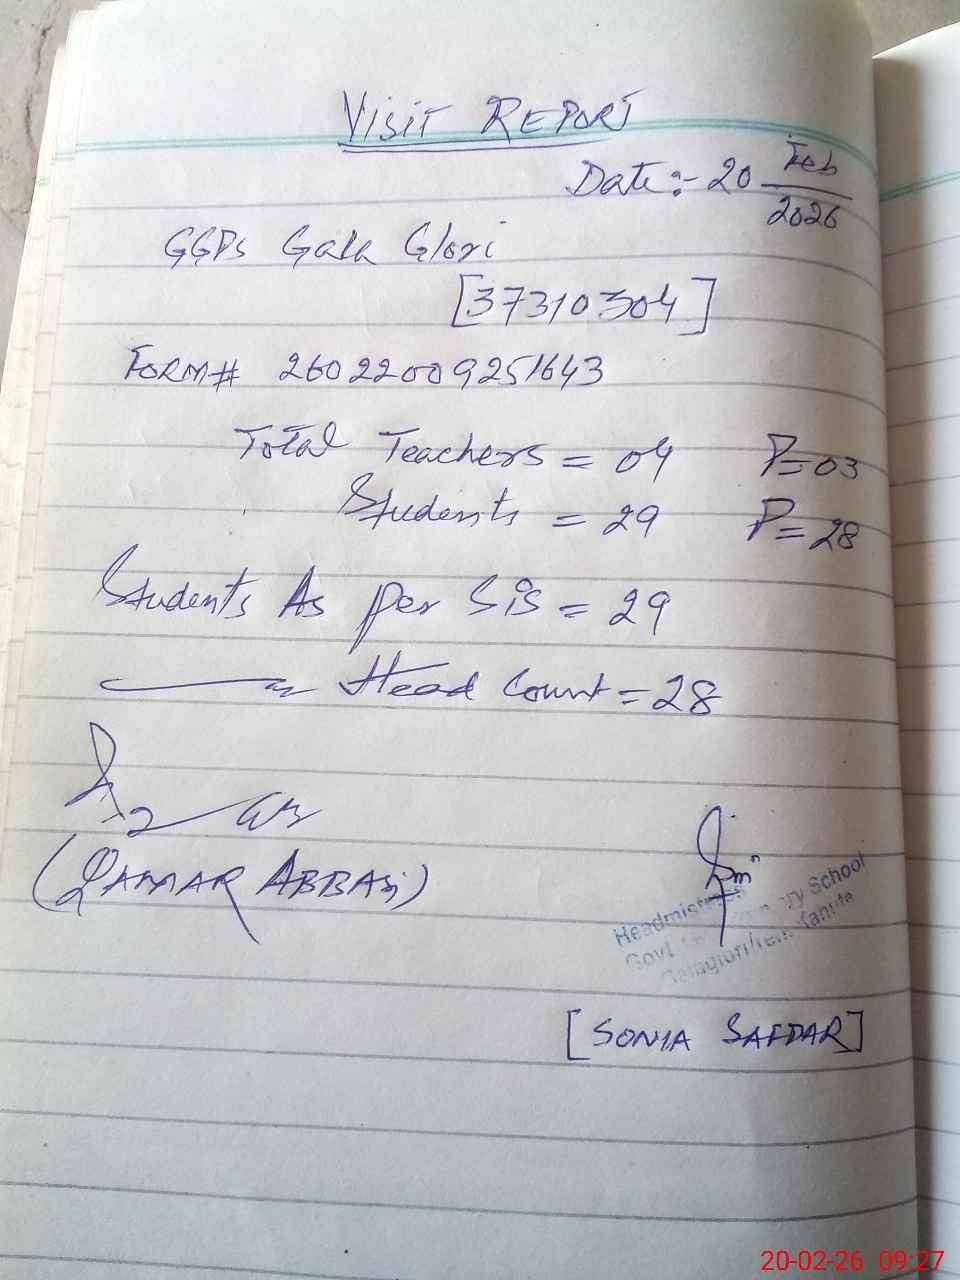 VISIT REPORT
Date:- 20 Feb
2026
GGPS Gala Glori
[37310304]
FORM# 26022009251643
Total Teachers = 04 P=03
Students = 29 P=28
Students As per SiS = 29
Head Count = 28
(QAMAR ABBAS)
Headmistress
Govt. School
[SONIA SAFDAR]
20-02-26 09:27